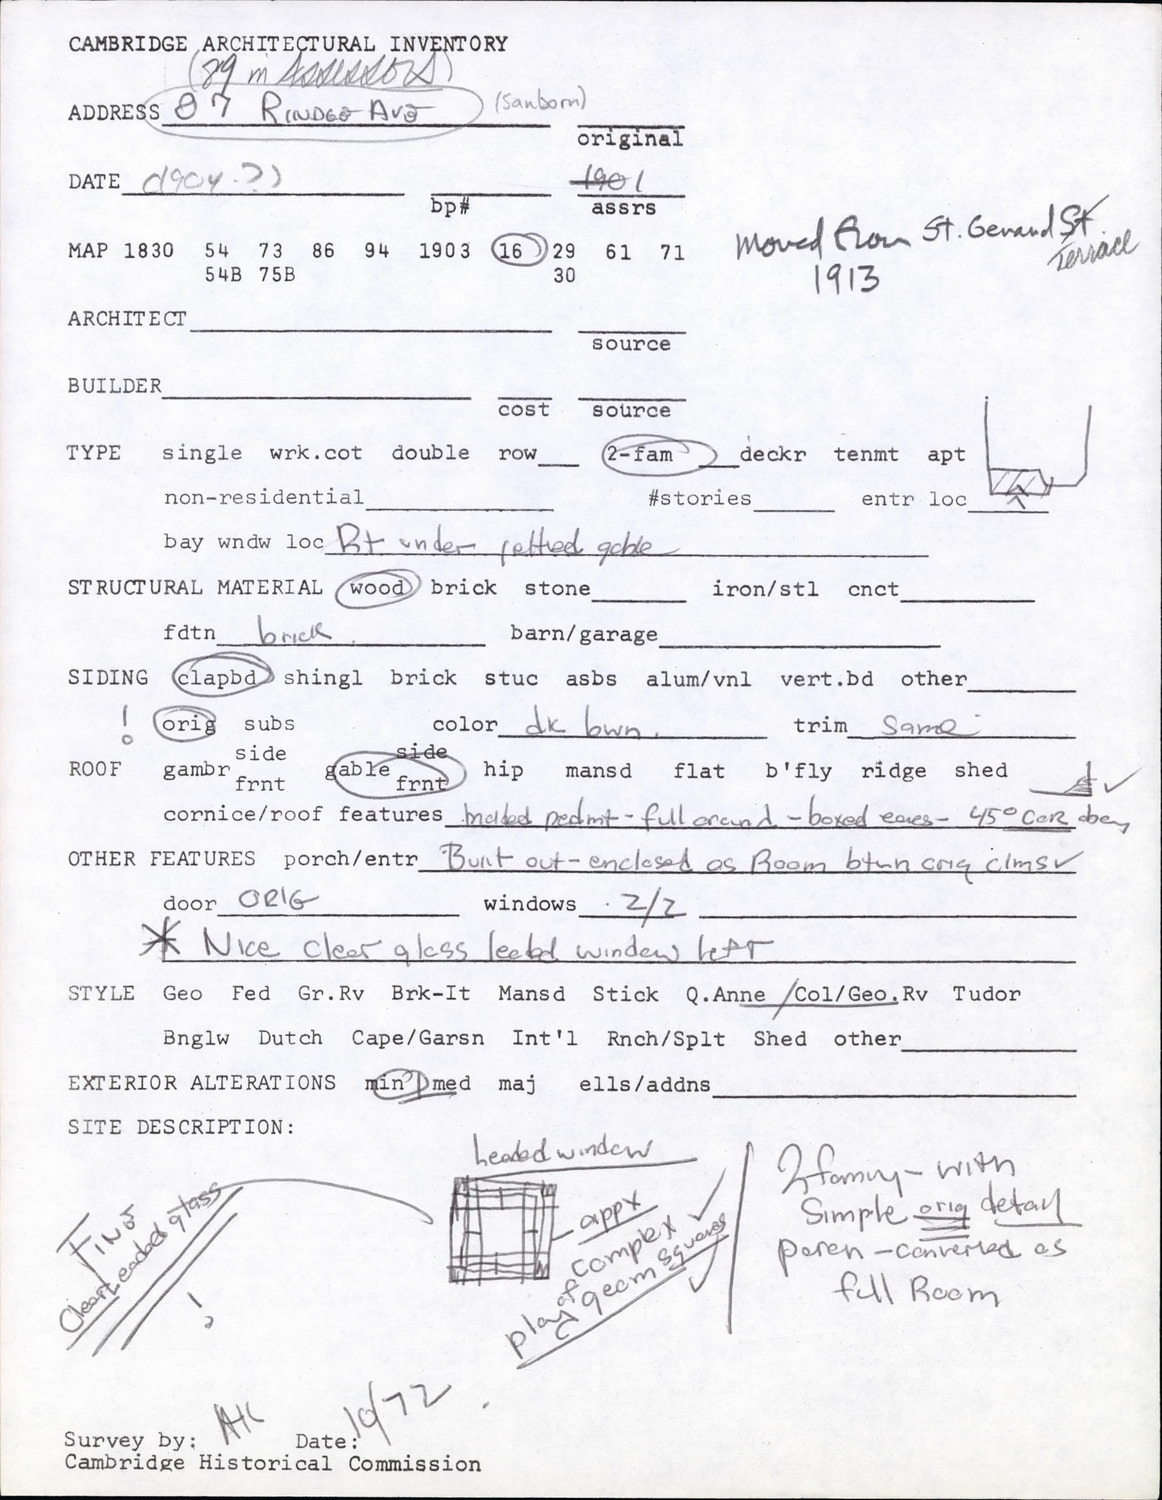 CAMBRIDGE ARCHITECTURAL INVENTORY
(89 in ASSESSORS)
ADDRESS 87 RINDGE AVE (Sanborn)
original
DATE (1904?) 1901
bp# assrs
MAP 1830 54 73 86 94 1903 16 29 61 71
54B 75B 30
Moved from St. Gerard St.
Terrace
1913
ARCHITECT
source
BUILDER
cost source
TYPE single wrk.cot double row 2-fam deckr tenmt apt
non-residential #stories entr loc
bay wndw loc Rt under gable
STRUCTURAL MATERIAL wood brick stone iron/stl cnct
fdtn brick barn/garage
SIDING clapbd shingl brick stuc asbs alum/vnl vert.bd other
! orig subs color dk bwn. trim Same
side side
ROOF gambr gable hip mansd flat b'fly ridge shed
frnt frnt
cornice/roof features molded pedmt - full around - boxed eaves - 45° Cor
OTHER FEATURES porch/entr Built out - enclosed as Room btwn orig clms
door ORIG windows 2/2
* Nice clear glass leaded window left
STYLE Geo Fed Gr.Rv Brk-It Mansd Stick Q.Anne /Col/Geo.Rv Tudor
Bnglw Dutch Cape/Garsn Int'l Rnch/Splt Shed other
EXTERIOR ALTERATIONS min med maj ells/addns
SITE DESCRIPTION:
Leaded window
FINE
Clear Leaded glass
!
- appx
complex
play of geom squares
2 family - with
Simple orig detail
- converted as
full Room
Survey by: Date: 10/72
Cambridge Historical Commission